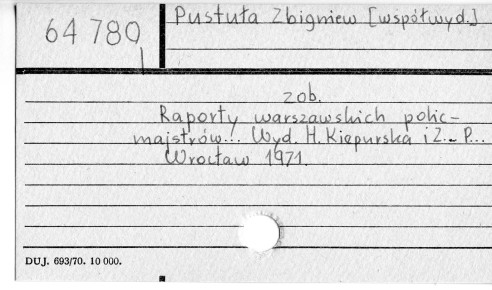 64 780
Pustuła Zbigniew [współwyd.]
zob.
Raporty warszawskich polic-
majstrów... Wyd. H. Kiepurska i Z. P...
Wrocław 1971.
DUJ. 693/70. 10 000.